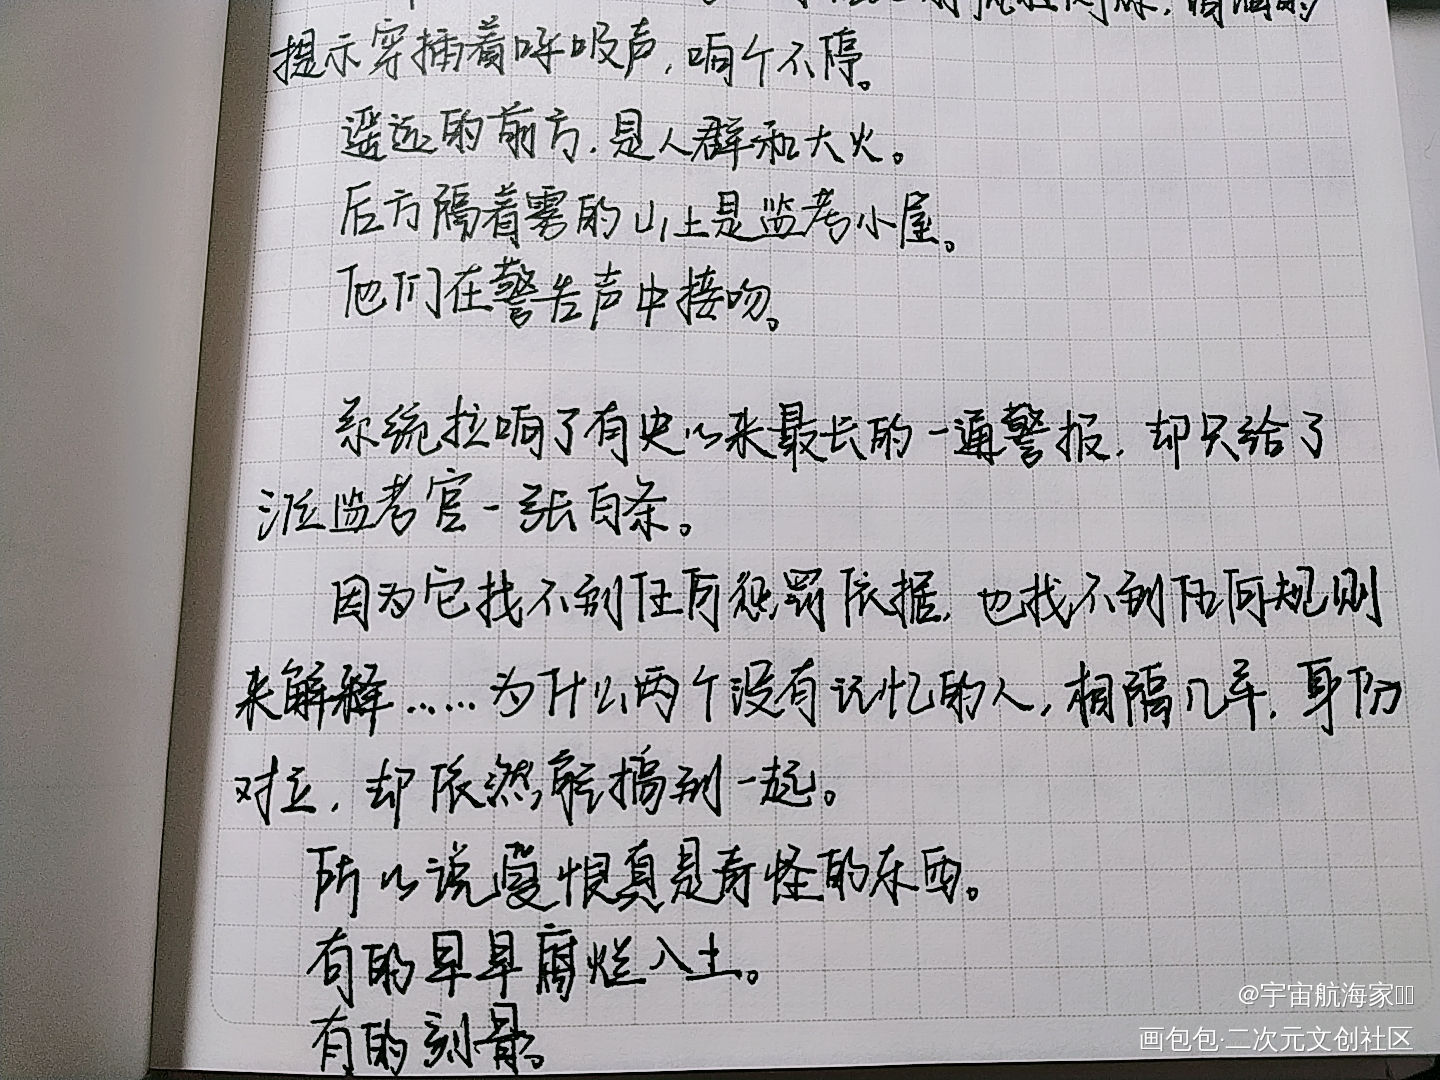 提示穿插着呼吸声，响个不停。
遥远的前方，是人群和大火。
后方隔着雾的山上是监考小屋。
他们在警告声中接吻。
系统拉响了有史以来最长的一通警报，却只给了
派监考官一张白条。
因为它找不到任何惩罚依据，也找不到任何规则
来解释……为什么两个没有记忆的人，相隔几年，身份
对立，却依然能搞到一起。
所以说爱恨真是奇怪的东西。
有的早早腐烂入土。
有的刻骨。
@宇宙航海家
画包包·二次元文创社区